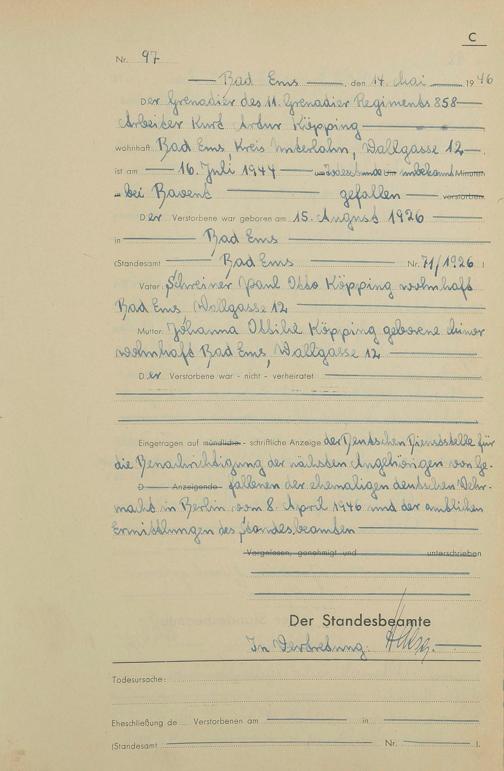 C
Nr. 97
Bad Ems, den 14. Mai 1946
Der Grenadier des 11. Grenadier Regiments 858
Arbeiter Kurt Artur Köpping
wohnhaft Bad Ems, Kreis Unterlahn, Wallgasse 12
ist am 16. Juli 1944 um Todesstunde Uhr unbekannt Minuten
bei gefallen verstorben.
Der Verstorbene war geboren am 15. August 1926
in Bad Ems
(Standesamt Bad Ems Nr. 71/1926)
Vater: Schreiner Paul Otto Köpping wohnhaft
Bad Ems Wallgasse 12
Mutter: Johanna Ottilie Köpping geborene
wohnhaft Bad Ems, Wallgasse 12
Der Verstorbene war - nicht - verheiratet
Eingetragen auf mündliche - schriftliche Anzeige der Deutschen Dienststelle für
die Benachrichtigung der nächsten Angehörigen von Ge-
D Anzeigende fallenen der ehemaligen deutschen Wehr-
macht in Berlin vom 8. April 1946 und der amtlichen
Ermittlungen des Standesbeamten
Vorgelesen, genehmigt und unterschrieben
Der Standesbeamte
In Vertretung:
Todesursache:
Eheschließung de Verstorbenen am in
(Standesamt Nr. ).